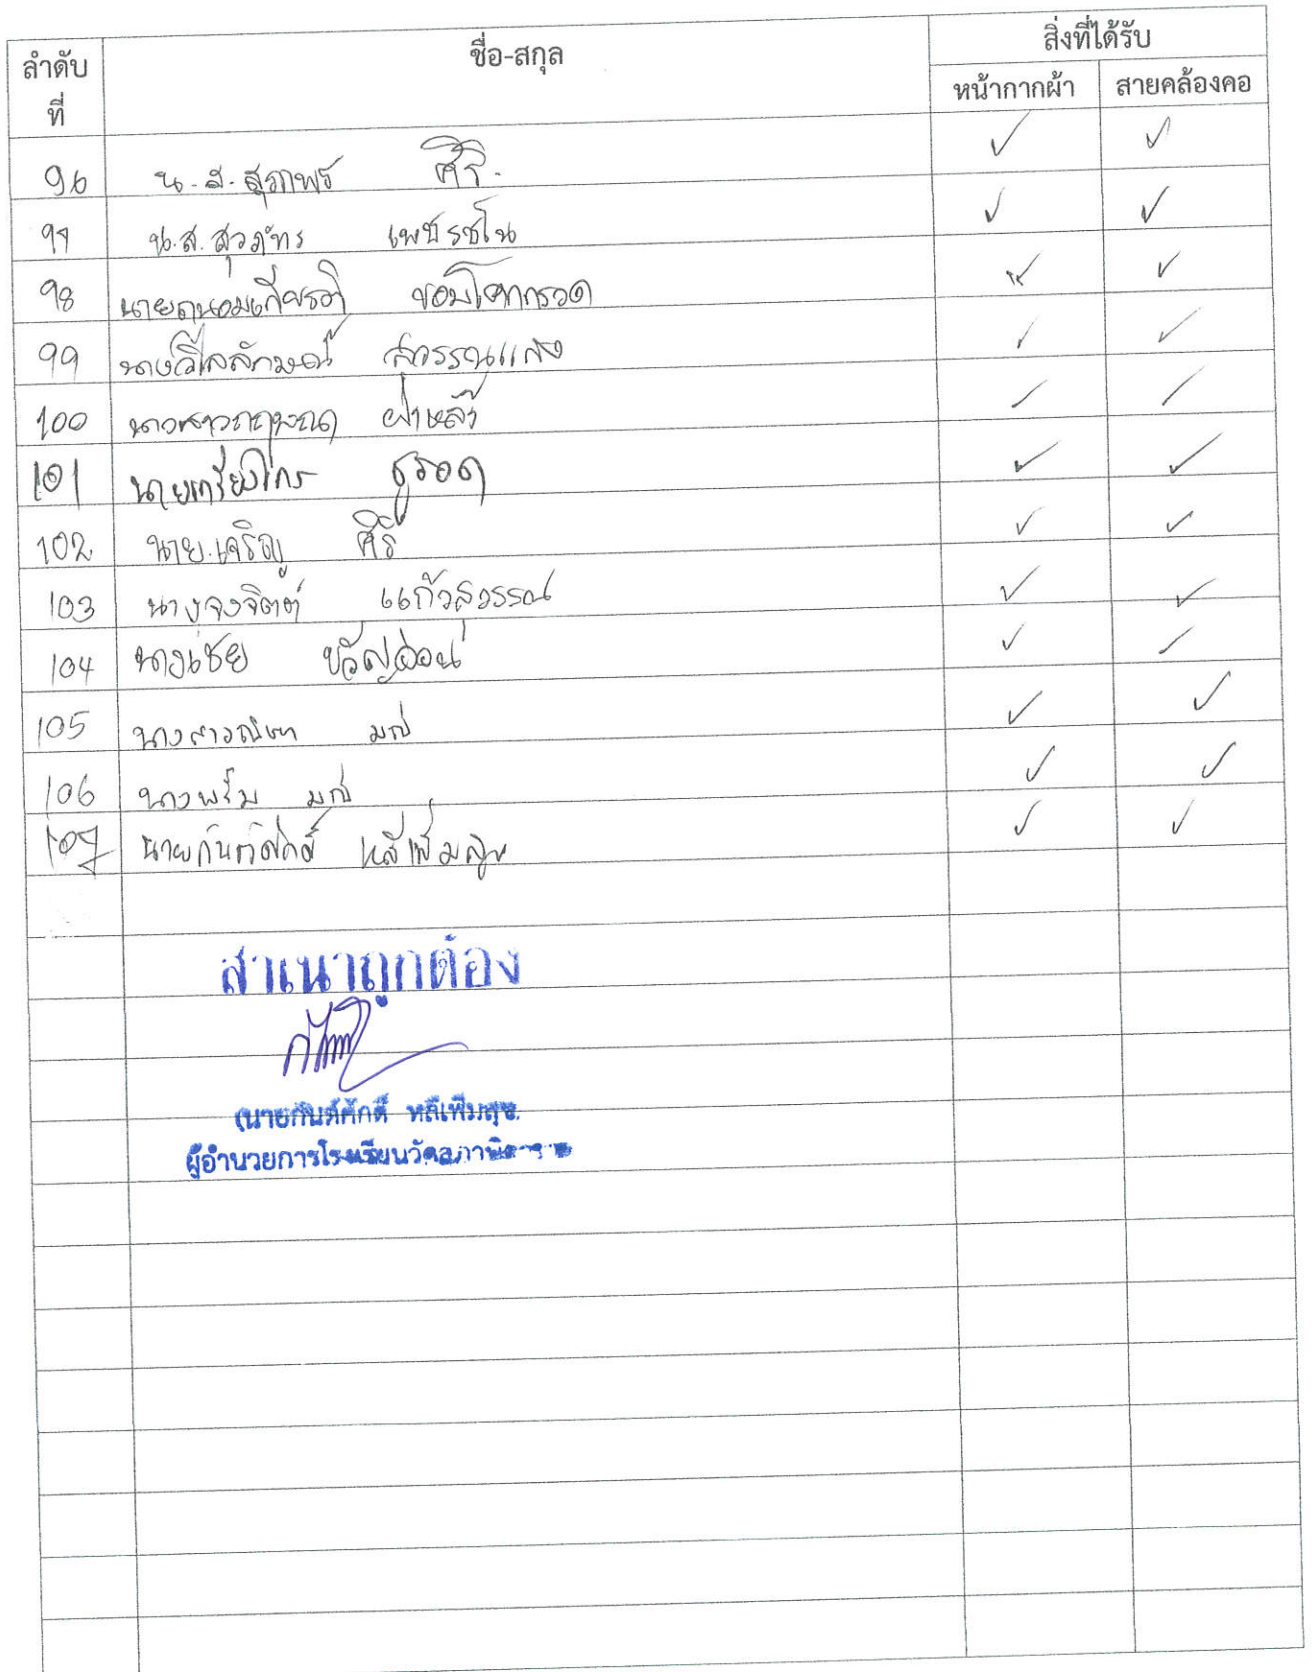 ลำดับที่ ชื่อ-สกุล สิ่งที่ได้รับ
หน้ากากผ้า สายคล้องคอ
96 น.ส.สุภาพร ศิริ. ✓ ✓
97 น.ส.สุวภัทร เพชรชโน ✓ ✓
98 นายถนอมเกียรติ ขอมโคกกรวด ✓ ✓
99 นางวิไลลักษณ์ สุวรรณแสง ✓ ✓
100 นางสาวกฤษณา ฝาเหล้ว ✓ ✓
101 นายเกรียงไกร ชูรอด ✓ ✓
102 นาย.เจริญ ศิริ ✓ ✓
103 นางจงจิตต์ แก้วสุวรรณ์ ✓ ✓
104 นางเชย ขวัญอ่อน ✓ ✓
105 นางสาว ✓ ✓
106 นาง ✓ ✓
107 นายกันต์ศักดิ์ หลีเพิ่มสุข ✓ ✓
สำเนาถูกต้อง
(นายกันต์ศักดิ์ หลีเพิ่มสุข
ผู้อำนวยการโรงเรียนวัด